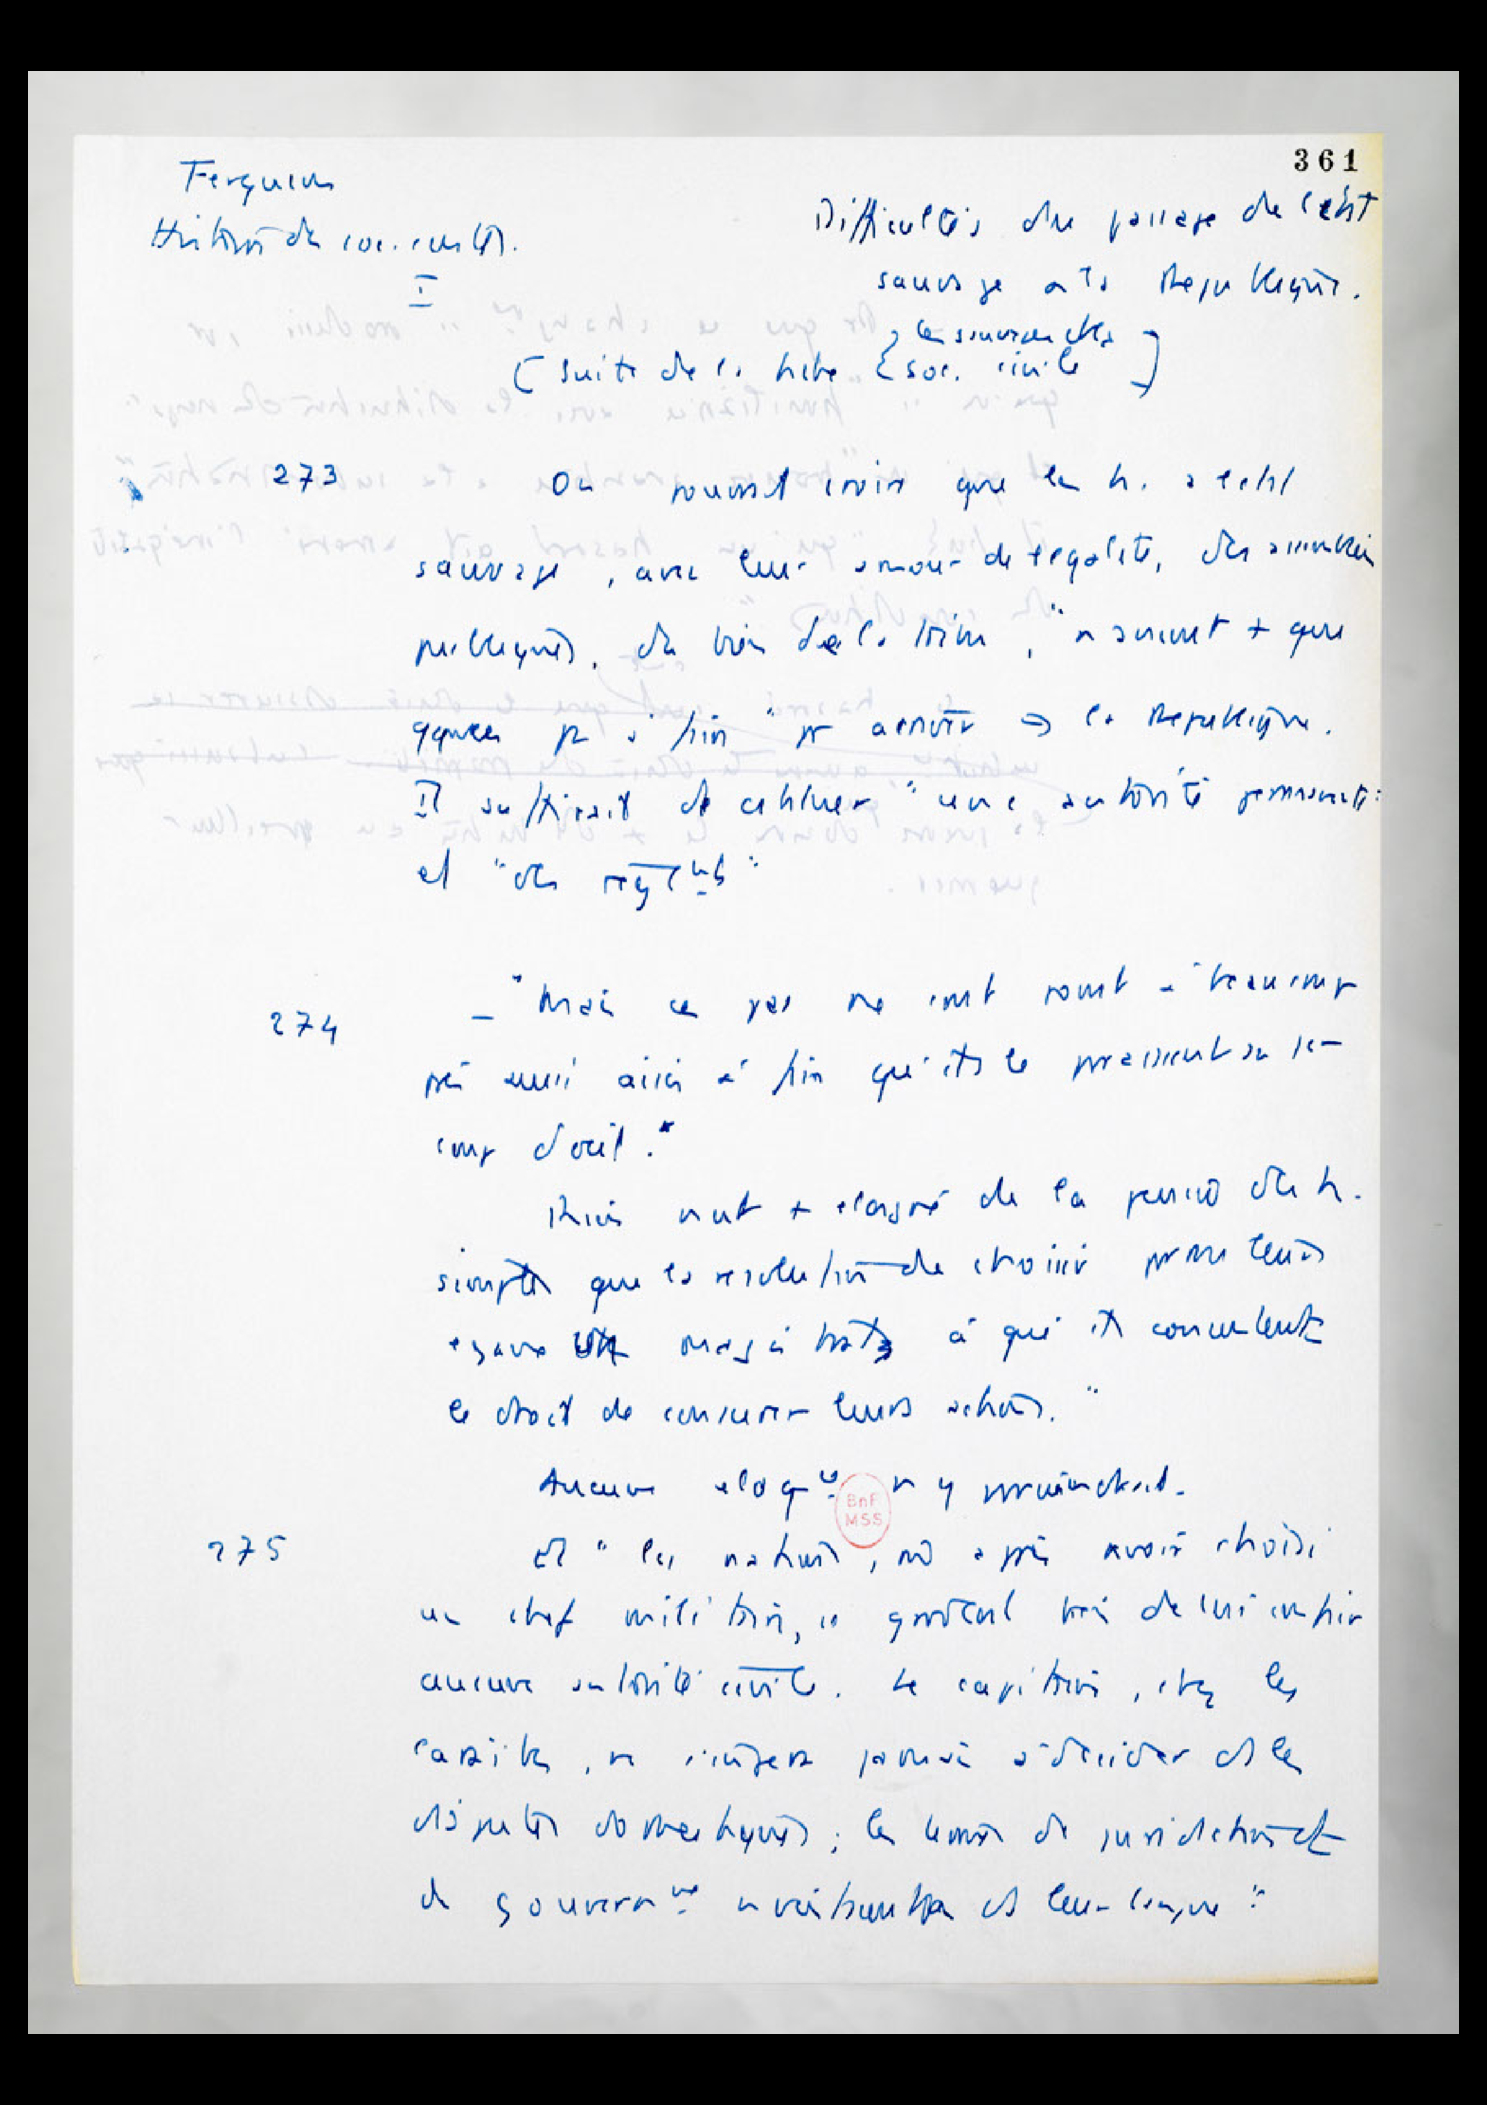 361
Ferguson
Histoire des soc. civiles.
I
Difficultés du passage de l'état
sauvage à la République.
les sauvages et la
(suite de la fiche { soc. civile )
273 On pourrait croire que les h. à l'état
sauvage, avec leur amour de l'égalité, des assemblées
publiques, du bien de la tribu, "n'auront + que
q pas à faire" pr arriver → la République.
Il suffirait d'établir "une autorité permanente"
et "des reglts"
274 – "Mais ce pas ne sont point à beaucoup
près aussi aisés à faire qu'ils le paraissent au 1er
coup d'œil."
Rien n'est + éloigné de la pensée des h.
simples que la résolution de choisir parmi leurs
égaux magistrats à qui ils
le droit de censurer leurs actions."
Aucune éloqce n'y
275 Et "les nations, mê après avoir choisi
un chef militaire, se gardent bien de lui confier
aucune autorité civile. Le capitaine, chez les
caraibes, ne songera jamais à décider ds les
disputes domestiques; les termes de juridiction et
de gouvernmt n'existent pas ds leur langue"
BnF
MSS